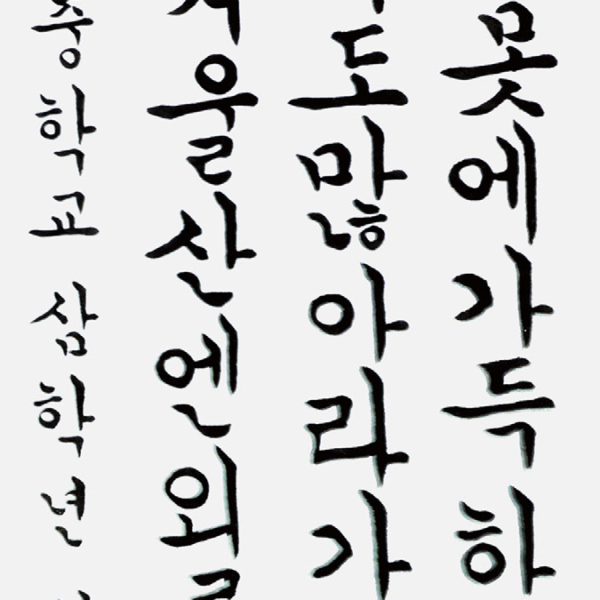 못에가득하
도많아라가
울산엔외
중학교 삼학년